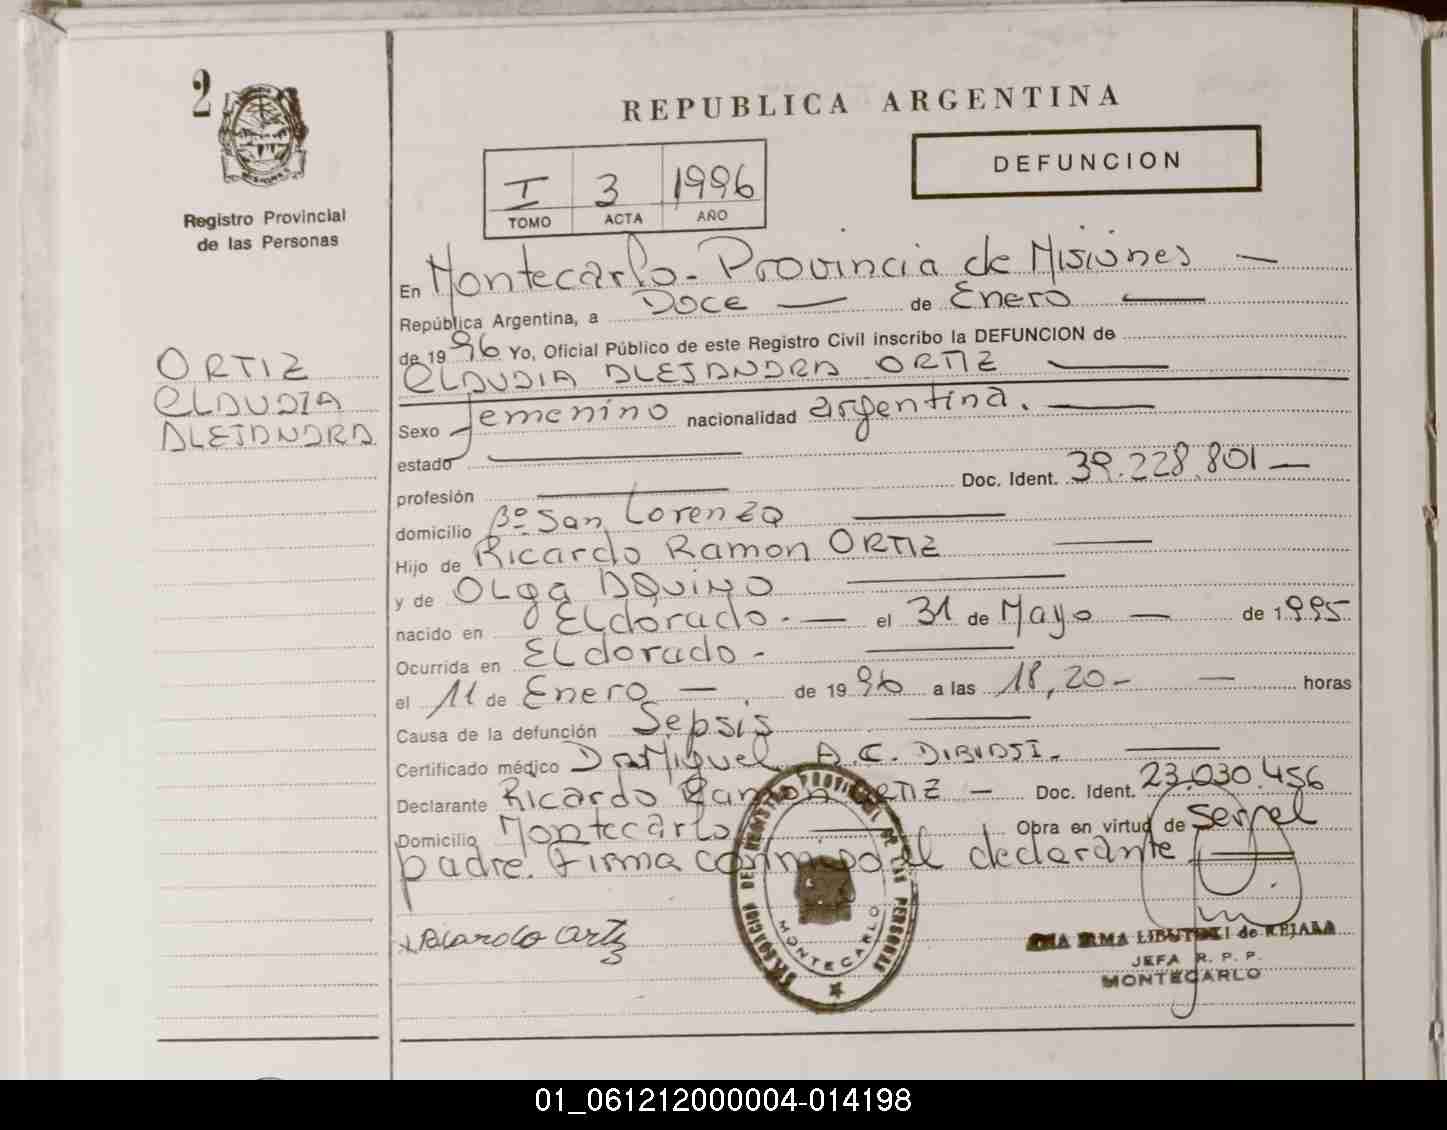 2
REPUBLICA ARGENTINA
DEFUNCION
I 3 1996
TOMO ACTA AÑO
Registro Provincial
de las Personas
ORTIZ
CLAUDIA
ALEJANDRA
En Montecarlo - Provincia de Misiones —
República Argentina, a Doce — de Enero —
de 1996 Yo, Oficial Público de este Registro Civil inscribo la DEFUNCION de
CLAUDIA ALEJANDRA ORTIZ —
Sexo Femenino nacionalidad argentina. —
estado —
profesión — Doc. Ident. 39.228.801 —
domicilio Bº San Lorenzo —
Hijo de Ricardo Ramon ORTIZ —
y de Olga AQUINO —
nacido en ELdorado. — el 31 de Mayo — de 1995
Ocurrida en ELdorado - —
el 11 de Enero — de 1996 a las 18,20 - — horas
Causa de la defunción Sepsis —
Certificado médico Dr Miguel A.C. —
Declarante Ricardo Ramon ORTIZ — Doc. Ident. 23.030.456
Domicilio Montecarlo — Obra en virtud de ser el
padre. Firma conmigo el declarante —
Ricardo Ortiz
DELEGACION DE REGISTRO PROVINCIAL DE LAS PERSONAS
MONTECARLO
IRMA de
JEFA R. P. P.
MONTECARLO
01_061212000004-014198